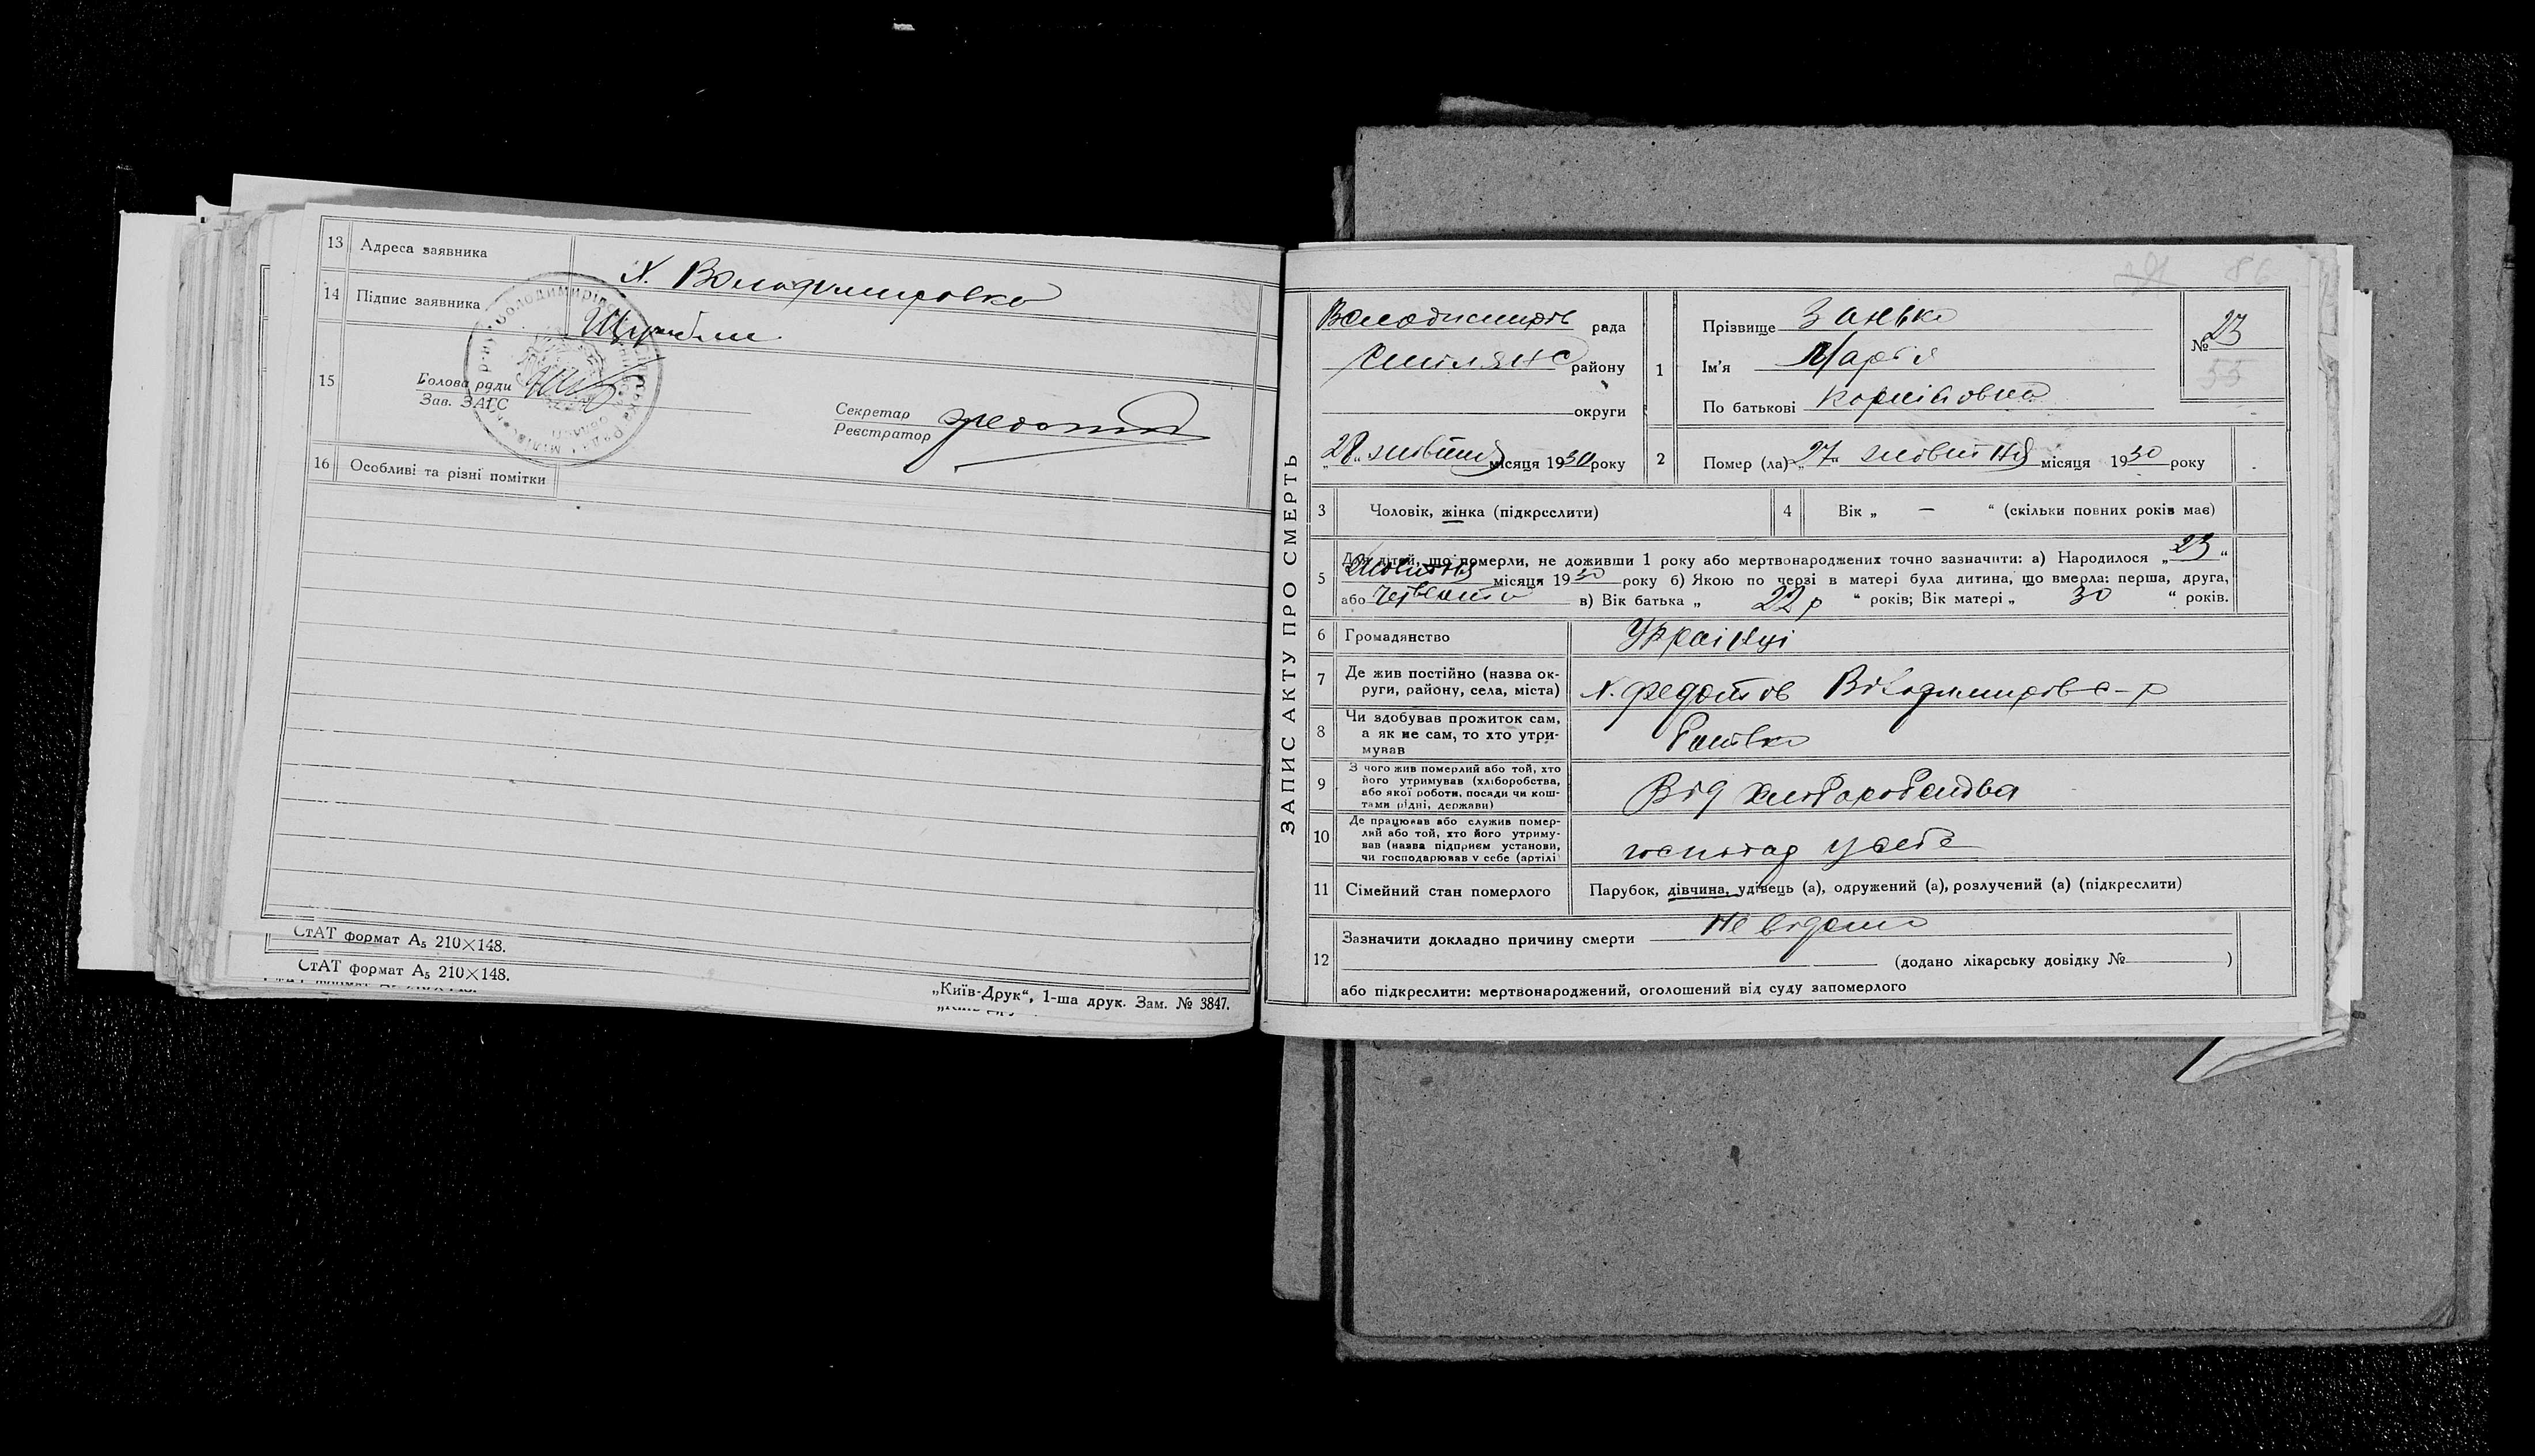 13 Адреса заявника Х. Володимировка
14 Підпис заявника
15 Голова ради
Зав. ЗАГС
Секретар
Реєстратор
16 Особливі та різні помітки
СтАТ формат А₅ 210×148.
СтАТ формат А₅ 210×148.
„Київ-Друк“, 1-ша друк. Зам. № 3847.
86
ЗАПИС АКТУ ПРО СМЕРТЬ
Володимирів рада
Смілянс району
округи
„28“ жовтня місяця 1930 року
1 Прізвище Занько
Ім'я Марія
По батькові Корніївна
№ 23
55
2 Помер (ла) „27“ жовтня місяця 1930 року
3 Чоловік, жінка (підкреслити)
4 Вік „ — “ (скільки повних років має)
5 Для дітей, що померли, не доживши 1 року або мертвонароджених точно зазначити: а) Народилося „23“
жовтня місяця 1930 року б) Якою по черзі в матері була дитина, що вмерла: перша, друга,
або в) Вік батька „ 22 р “ років; Вік матері „ 30 “ років.
6 Громадянство Українці
7 Де жив постійно (назва ок-
руги, району, села, міста) Х. Федотов Володимировс-р
8 Чи здобував прожиток сам,
а як не сам, то хто утри-
мував Батько
9 З чого жив померлий або той, хто
його утримував (хліборобства,
або якої роботи, посади чи кош-
тами рідні, держави) Від хліборобства
10 Де працював або служив помер-
лий або той, хто його утриму-
вав (назва підприєм установи,
чи господарював у себе (артілі господ у себе
11 Сімейний стан померлого Парубок, дівчина, удівець (а), одружений (а), розлучений (а) (підкреслити)
12 Зазначити докладно причину смерти Не відомо
(додано лікарську довідку № )
або підкреслити: мертвонароджений, оголошений від суду запомерлого